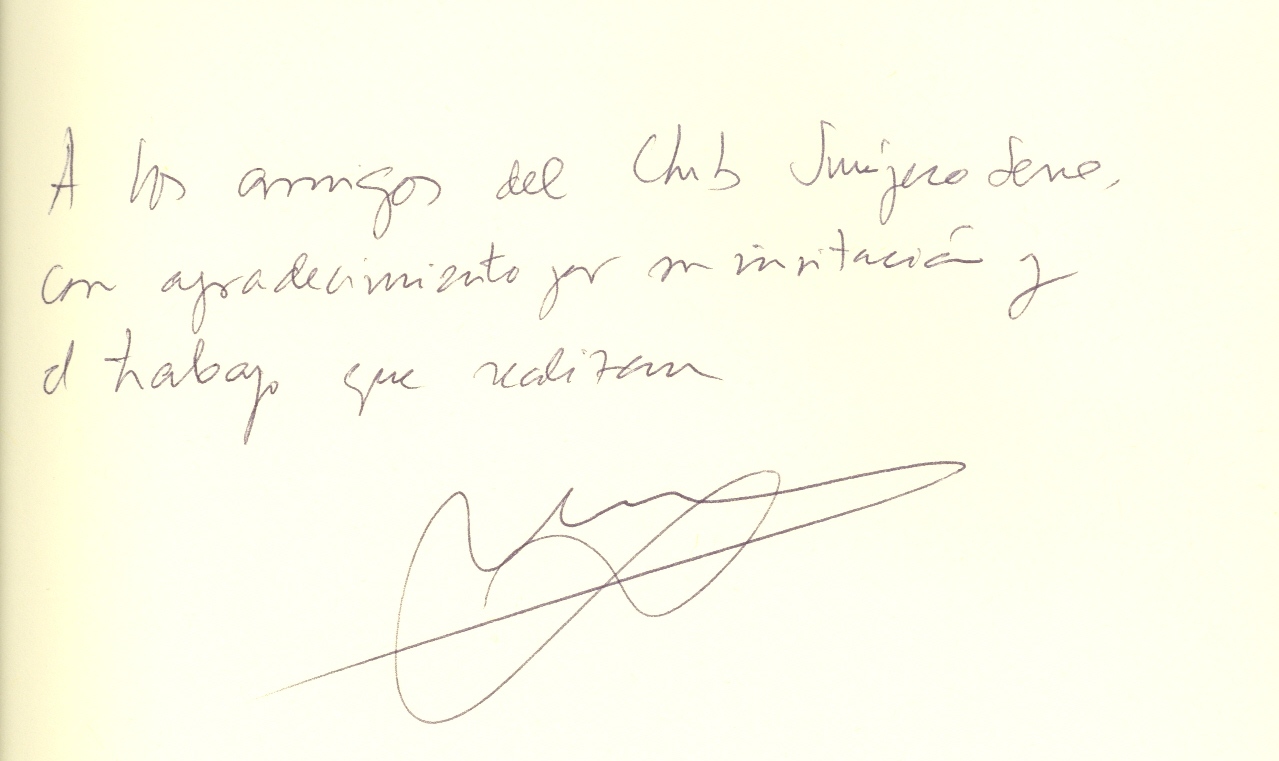 A los amigos del Club Junípero Serra,
con agradecimiento por su invitación y
el trabajo que realizan